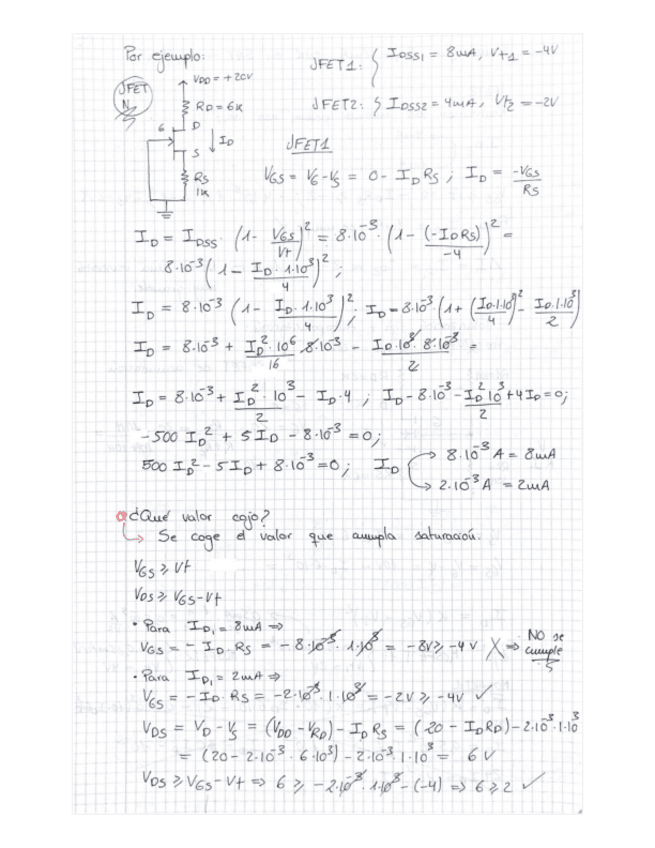 Por ejemplo:
JFET N
V_DD = +20V
R_D = 6K
D
G
I_D
S
R_S
1K
JFET1: { I_DSS1 = 8mA, V_t1 = -4V
JFET2: { I_DSS2 = 4mA, V_t2 = -2V
JFET1
V_GS = V_G - V_S = 0 - I_D R_S ; I_D = -V_GS / R_S
I_D = I_DSS · (1 - V_GS/Vt)² = 8·10⁻³ · (1 - (-I_D R_S)/-4)² =
8·10⁻³ (1 - I_D · 1·10³/4)² ;
I_D = 8·10⁻³ (1 - I_D · 1·10³/4)² ; I_D = 8·10⁻³ (1 + (I_D·1·10³/4)² - I_D·1·10³/2)
I_D = 8·10⁻³ + I_D² · 10⁶ · 8·10⁻³/16 - I_D · 10³ · 8·10⁻³/2 =
I_D = 8·10⁻³ + I_D² · 10³/2 - I_D · 4 ; I_D - 8·10⁻³ - I_D² 10³/2 + 4 I_D = 0;
-500 I_D² + 5 I_D - 8·10⁻³ = 0;
500 I_D² - 5 I_D + 8·10⁻³ = 0 ; I_D → 8·10⁻³ A = 8mA
→ 2·10⁻³ A = 2mA
¿Qué valor cojo?
↳ Se coge el valor que cumpla saturación.
V_GS ≥ Vt
V_DS ≥ V_GS - Vt
· Para I_D1 = 8mA ⇒
V_GS = - I_D · R_S = -8·10⁻³ · 1·10³ = -8V ≥ -4V ✗ ⇒ NO se cumple
· Para I_D1 = 2mA ⇒
V_GS = - I_D · R_S = -2·10⁻³ · 1·10³ = -2V ≥ -4V ✓
V_DS = V_D - V_S = (V_DD - V_RD) - I_D R_S = (20 - I_D R_D) - 2·10⁻³ · 1·10³
= (20 - 2·10⁻³ · 6·10³) - 2·10⁻³ · 1·10³ = 6V
V_DS ≥ V_GS - Vt ⇒ 6 ≥ -2·10⁻³ · 1·10³ - (-4) ⇒ 6 ≥ 2 ✓